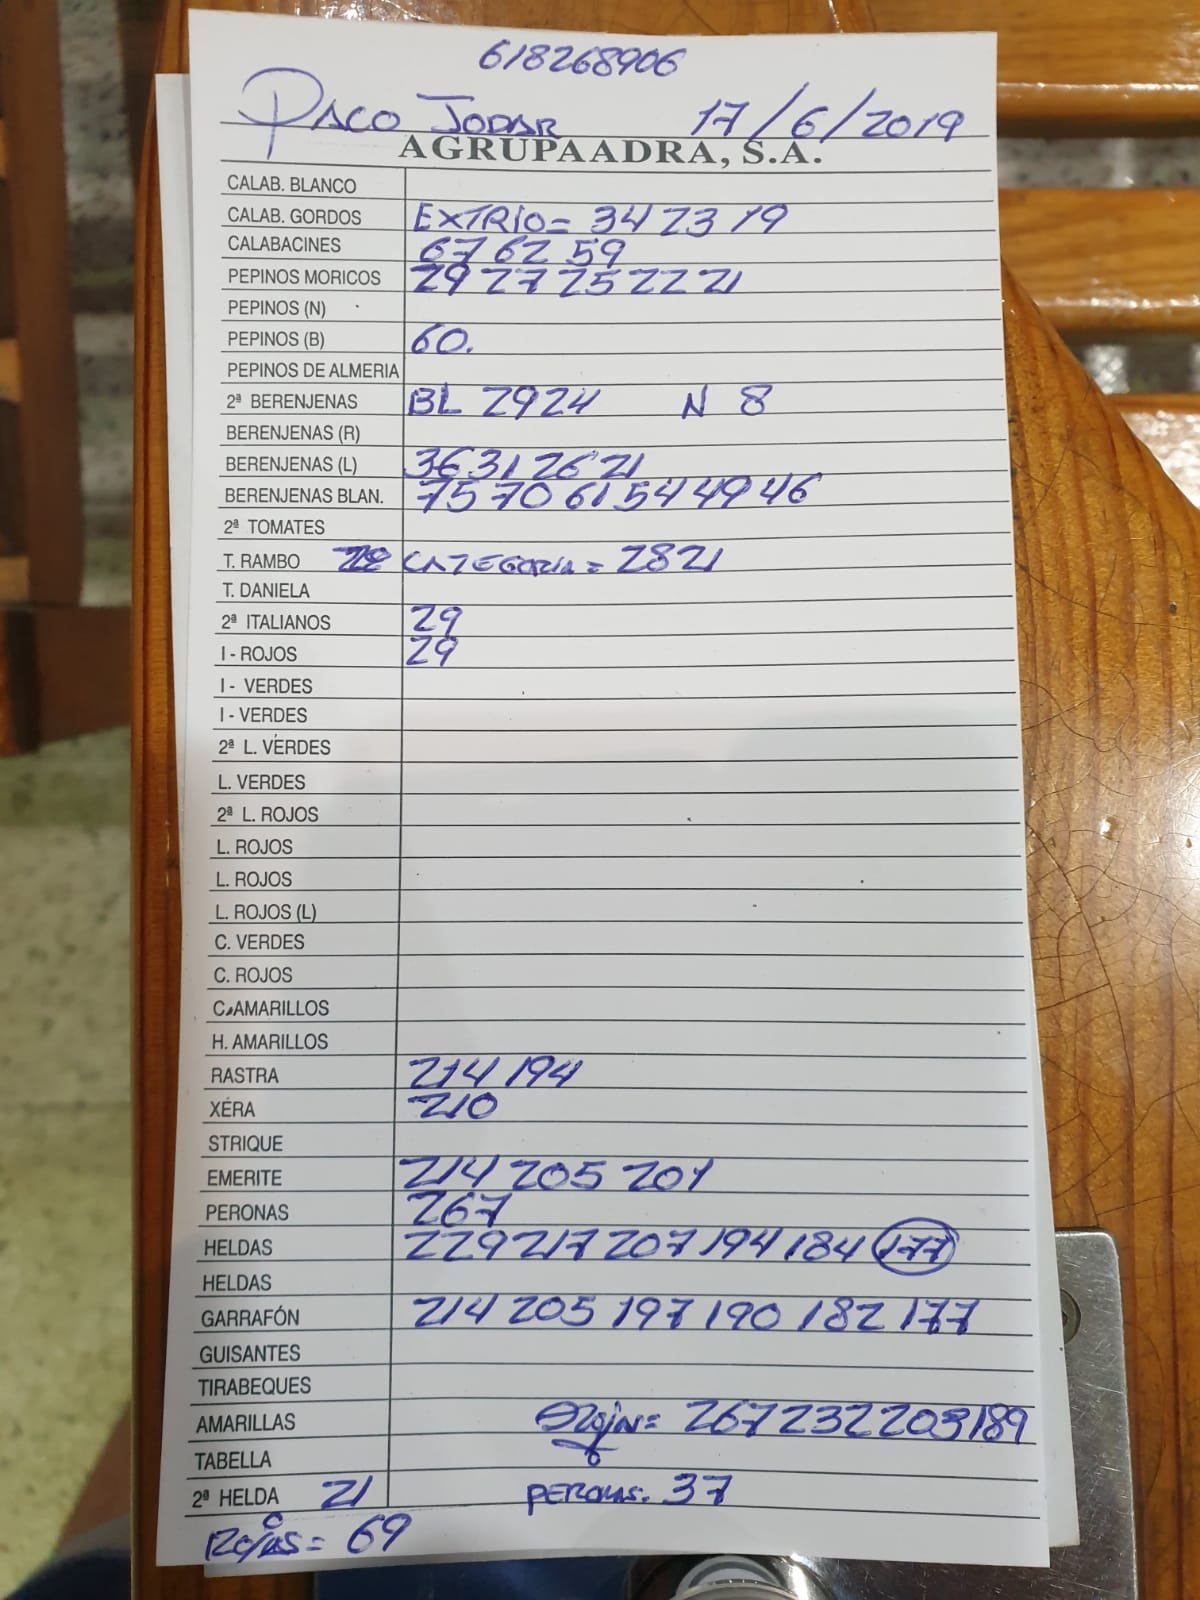 618268906
PACO JODAR 17/6/2019
AGRUPAADRA, S.A.
CALAB. BLANCO
CALAB. GORDOS EXTRIO= 34 23 19
CALABACINES 67 62 59
PEPINOS MORICOS 29 27 25 22 21
PEPINOS (N)
PEPINOS (B) 60.
PEPINOS DE ALMERIA
2ª BERENJENAS BL 29 24 N 8
BERENJENAS (R)
BERENJENAS (L) 36 31 26 21
BERENJENAS BLAN. 75 70 61 54 49 46
2ª TOMATES
T. RAMBO CATEGORIA= 28 21
T. DANIELA
2ª ITALIANOS 29
I - ROJOS 29
I - VERDES
I - VERDES
2ª L. VERDES
L. VERDES
2ª L. ROJOS
L. ROJOS
L. ROJOS
L. ROJOS (L)
C. VERDES
C. ROJOS
C. AMARILLOS
H. AMARILLOS
RASTRA 214 194
XÉRA 210
STRIQUE
EMERITE 214 205 201
PERONAS 267
HELDAS 229 217 207 194 184 177
HELDAS
GARRAFÓN 214 205 197 190 182 177
GUISANTES
TIRABEQUES
AMARILLAS 267 232 203 189
TABELLA
2ª HELDA 21 PERONAS. 37
ROJAS= 69